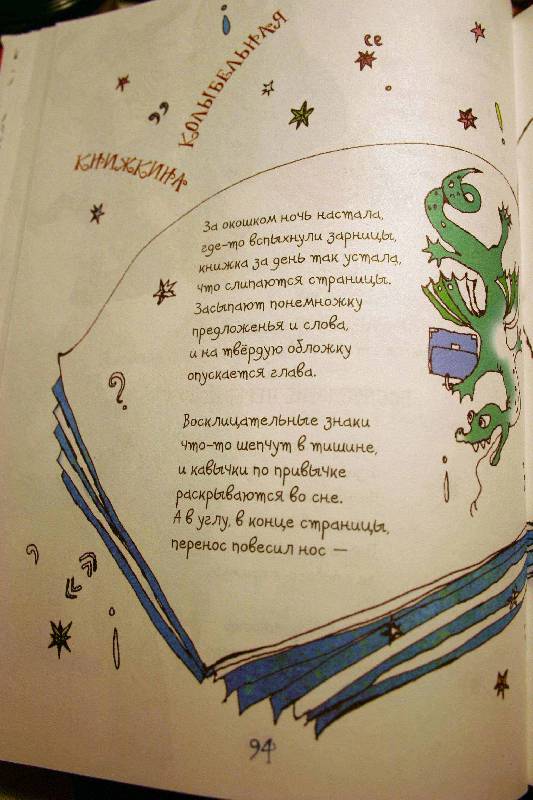 КНИЖКИНА
КОЛЫБЕЛЬНАЯ
За окошком ночь настала,
где-то вспыхнули зарницы,
книжка за день так устала,
что слипаются страницы.
Засыпают понемножку
предложенья и слова,
и на твёрдую обложку
опускается глава.
Восклицательные знаки
что-то шепчут в тишине,
и кавычки по привычке
раскрываются во сне.
А в углу, в конце страницы,
перенос повесил нос —
94